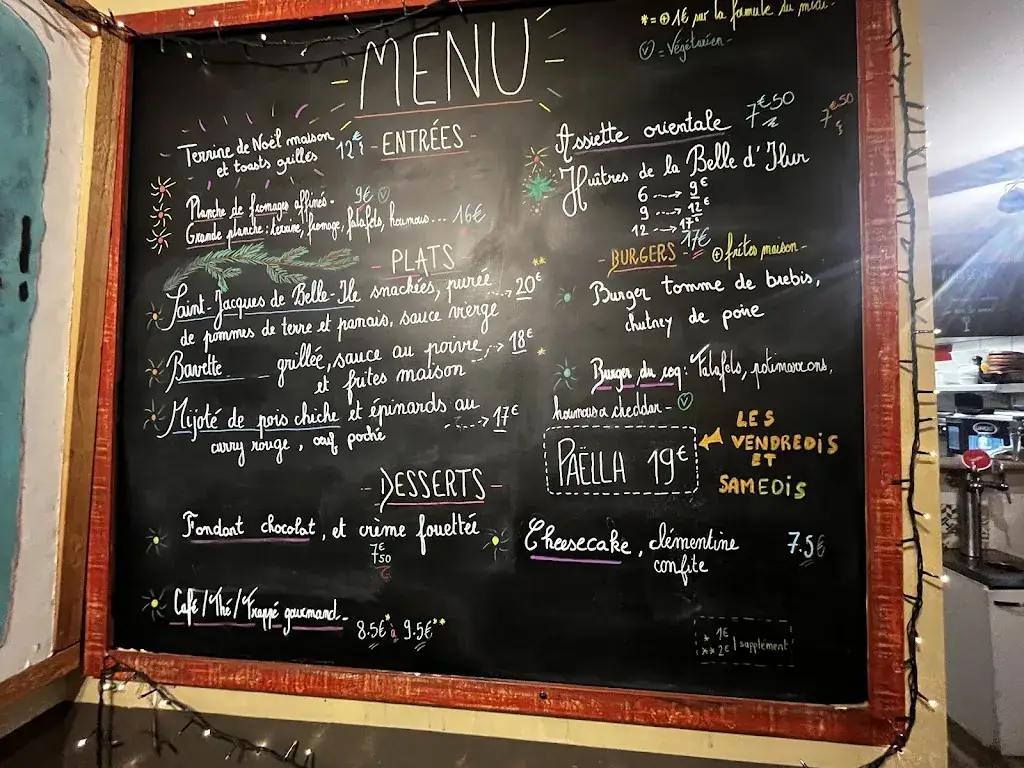 MENU
* = ⊕ 1€ sur la formule du midi.
Ⓥ = Végétarien -
- ENTRÉES -
Terrine de Noël maison 12€
et toasts grillés
Planche de fromages affinés - 9€ Ⓥ
Grande planche : terrine, fromage, falafels, houmous... 16€
Assiette orientale 7€50
7€50
Huîtres de la Belle d'Ilur
6 ---> 9€
9 ---> 12€
12 ---> 17€
- PLATS -
Saint-Jacques de Belle-Ile snackées, purée
de pommes de terre et panais, sauce vierge ---> 20€ **
Bavette grillée, sauce au poivre ---> 18€ *
et frites maison
Mijoté de pois chiche et épinards au ---> 17€
curry rouge, oeuf poché
- BURGERS - 17€ ⊕ frites maison -
Burger tomme de brebis,
chutney de poire
Burger du coq : Falafels, potimarrons,
houmous cheddar - Ⓥ
PAËLLA 19€
LES
VENDREDIS
ET
SAMEDIS
- DESSERTS -
Fondant chocolat, et crème fouettée
7€50
Cheesecake, clémentine 7.5€
confite
Café / Thé / Frappé gourmand -
8.5€* à 9.5€**
* 1€
** 2€ | supplément